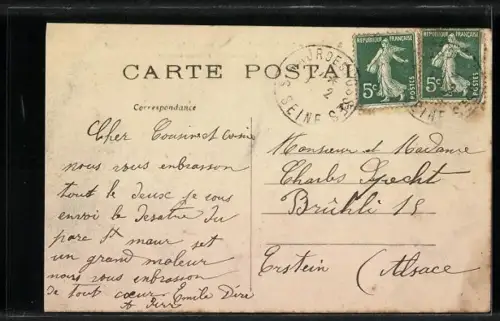 CARTE POSTALE
Correspondance
RÉPUBLIQUE FRANÇAISE
5c POSTES
RÉPUBLIQUE FRANÇAISE
5c POSTES
SEINE
SEINE
Cher Cousin et cosine
nous vous enbrasson
tout le deux je vous
envoi le desatre du
parc St maur set
un grand maleur
nous vous enbrasson
de tout cœur Emile Déré
Monsieur et Madame
Charles Specht
Brühli 15
Erstein (Alsace